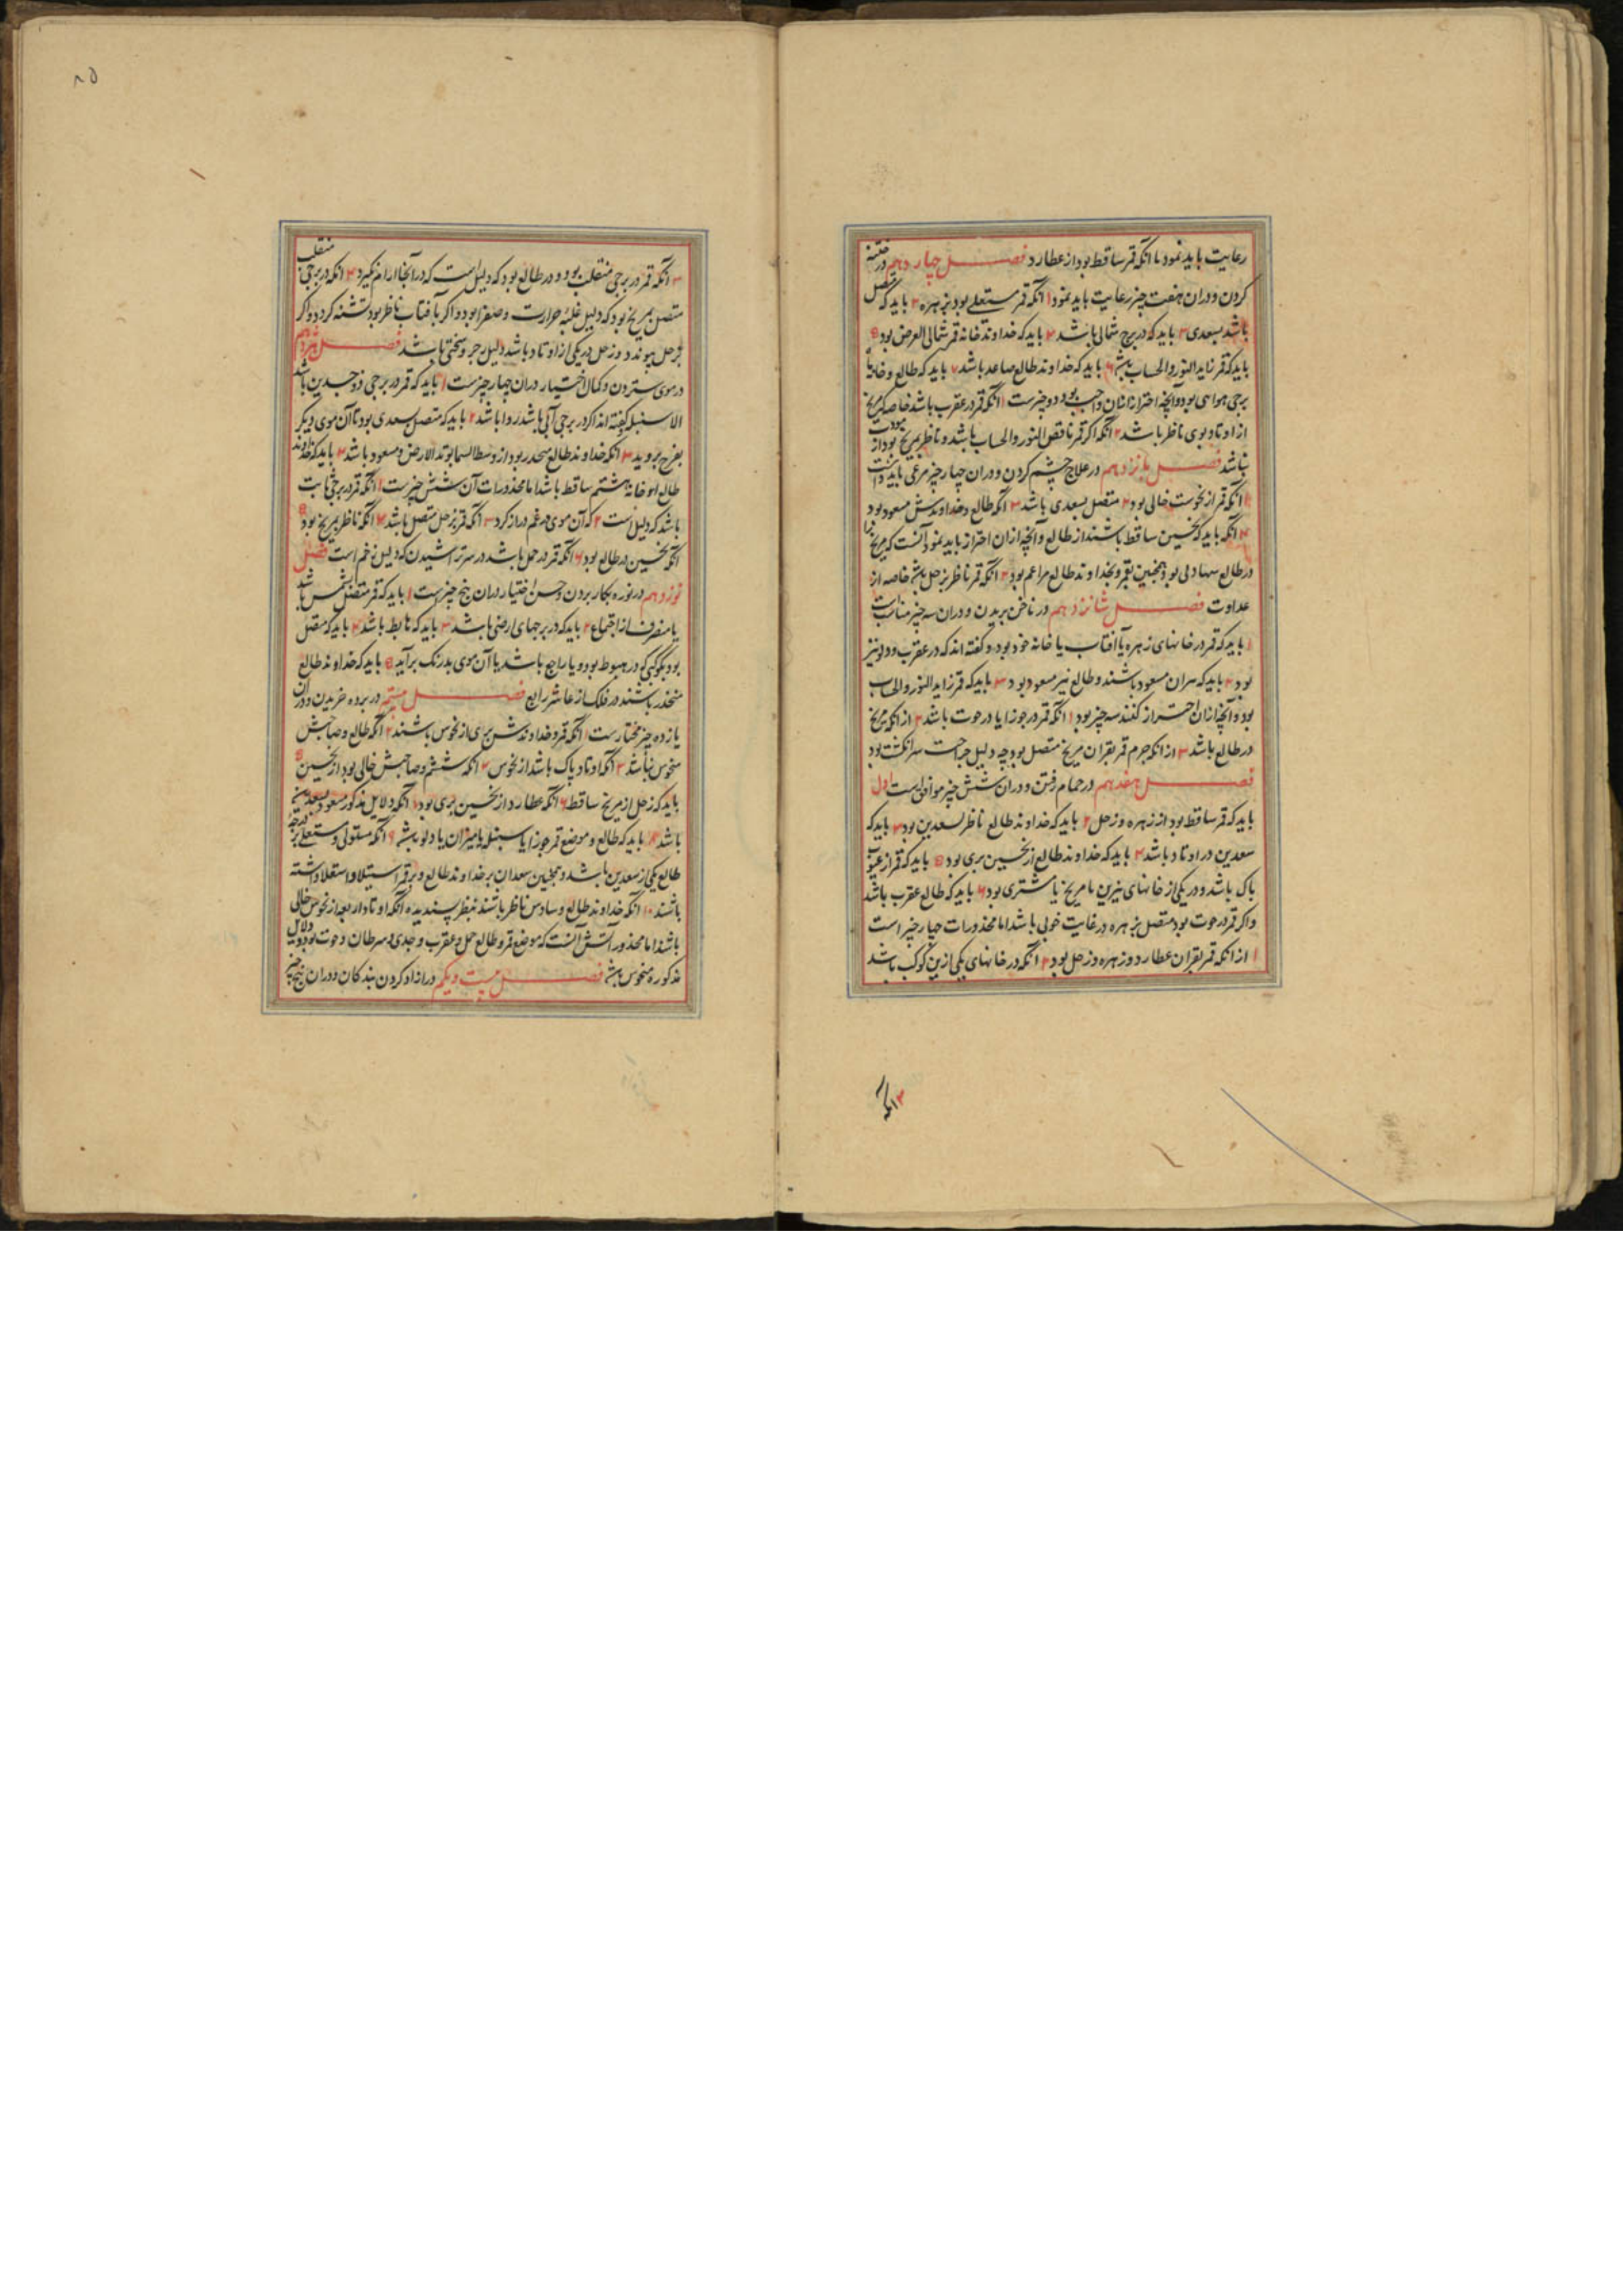 رعایت باید نمود تا انکه قمر ساقط بود از عطارد فصل چهاردهم در ختنه
کردن و دران هفت چیز رعایت باید نمود ۱ انکه قمر مستعلی بود بزهره ۲ باید که متصل
باشد بسعدی ۳ باید که در برج شمالی باشد ۴ باید که خداوند خانه قمر شمالی العرض بود ۵
باید که قمر زاید النور والحساب باشد ۶ باید که خداوند طالع صاعد باشد ۷ باید که طالع و خانه
برجی هوایی بود و آنچه احتراز ازان واجب بود دو چیزست ۱ انکه قمر در عقرب باشد خاصه که مریخ
از اوتاد بوی ناظر باشد ۲ انکه اکر قمر ناقص النور والحساب باشد و ناظر بمریخ بود از
نباشد فصل پانزدهم در علاج چشم کردن و دران چهار چیز مرعی باید داشت
۱ انکه قمر از نحوست خالی بود ۲ متصل بسعدی باشد ۳ انکه طالع و خداوندش مسعود بود
۴ انکه باید که نحسین ساقط باشند از طالع و آنچه ازان احتراز باید نمود آنست که مریخ را
در طالع سهادلی بود و همچنین بقمر و بخداوند طالع مراعم بود ۲ انکه قمر ناظر بزحل باشد خاصه از
عداوت فصل شانزدهم در ناخن بریدن و دران سه چیز مناسبست
۱ باید که قمر در خانهای زهره یا آفتاب یا خانه خود بود و کفته اند که در عقرب و دلو نیز
بود ۲ باید که سران مسعود باشند و طالع نیز مسعود بود ۳ باید که قمر زاید النور والحساب
بود و آنچه ازان احتراز کنند سه چیز بود ۱ انکه قمر در جوزا یا در حوت باشد ۲ از انکه مریخ
در طالع باشد ۳ از انکه جرم قمر بقران مریخ متصل بود چه دلیل جراحت سر انکشت بود
فصل هفدهم در حمام رفتن و دران شش چیز موافق است اول
باید که قمر ساقط بود از زهره و زحل ۲ باید که خداوند طالع ناظر بسعدین بود ۳ باید که
سعدین در اوتاد باشد ۴ باید که خداوند طالع از نحسین بری بود ۵ باید که قمر از عیوب
پاک باشد و در یکی از خانهای نیرین یا مریخ یا مشتری بود ۶ باید که طالع عقرب باشد
و اکر قمر در حوت بود متصل بزهره در غایت خوبی باشد اما محذورات چهار چیز است
۱ از انکه قمر بقران عطارد و زهره و زحل بود ۲ انکه در خانهای یکی ازین کوکب باشد
۳ انکه
۸۵
۳ انکه قمر در برجی منقلب بود و در طالع بود که دلیل است که در آنجا ارام نکیرد ۴ انکه در برجی منقلب
متصل بمریخ بود که دلیل غلبه حرارت و صفرا بود و اکر بآفتاب ناظر بود تشنه کردد و اکر
بزحل پیوندد و زحل در یکی از اوتاد باشد دلیل جر و سختی باشد فصل هژدهم
در موی ستردن و کمال اختیار دران چهار چیزست ۱ باید که قمر در برجی ذو جسدین باشد
الا سنبله کفته اند اکر در برجی آبی باشد روا باشد ۲ باید که متصل بسعدی بود تا آن موی دیکر
بفرح بروید ۳ انکه خداوند طالع منحدر بود از وسط السما بوتد الارض و مسعود باشد ۴ باید که خداوند
طالع از خانه هشتم ساقط باشد اما محذورات آن شش چیزست ۱ انکه قمر در برجی ثابت
باشد که دلیل است ۲ که آن موی در غم دراز کردد ۳ انکه قمر بزحل متصل باشد ۴ انکه ناظر بمریخ بود ۵
انکه نحسین در طالع بود ۶ انکه قمر در حمل باشد در سر تراشیدن که دلیل زخم است فصل
نوزدهم در نوره بکار بردن و حسن اختیار دران پنج چیزست ۱ باید که قمر متصل بشمس باشد
یا منصرف از اجتماع ۲ باید که در برجهای ارضی باشد ۳ باید که هابط باشد ۴ باید که متصل
بود بکوکبی که در هبوط بود و یا راجع باشد یا آن موی بدرنک برآید ۵ باید که خداوند طالع
منحدر باشند در فلک از عاشر برابع فصل بیستم در برده خریدن و دران
یازده چیز مختارست ۱ انکه قمر و خداوندش بری از نحوس باشند ۲ انکه طالع و صاحبش
منحوس نباشد ۳ انکه اوتاد پاک باشد از نحوس ۴ انکه ششم و صاحبش خالی بود از نحسین ۵
باید که زحل از مریخ ساقط ۶ انکه عطارد از نحسین بری بود ۷ انکه دلایل مذکور مسعود بسعدین
باشد ۸ باید که طالع و موضع قمر جوزا یا سنبله یا میزان یا دلو باشد ۹ انکه مستولی و مستعلی بر درجه
طالع یکی از سعدین باشد و همچنین سعدان بر خداوند طالع و بر قمر استیلا و استعلا داشته
باشند ۱۰ انکه خداوند طالع و سادس ناظر باشند بنظر پسندیده انکه اوتاد اربعه از نحوس خالی
باشد اما محذوراتش آنست که موضع قمر و طالع حمل و عقرب و جدی و سرطان و حوت بود و دلایل
مذکوره منحوس باشد فصل بیست و یکم در ازاد کردن بندکان و دران پنج چیز